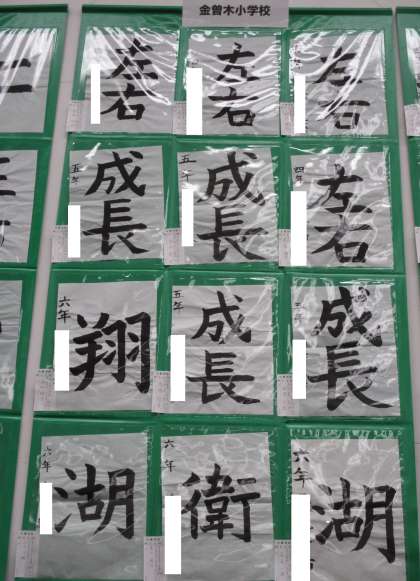 金曽木小学校
左右
左右
左右
五年
成長
五年
成長
四年
左右
六年
翔
五年
成長
成長
六年
湖
六年
衛
六年
湖